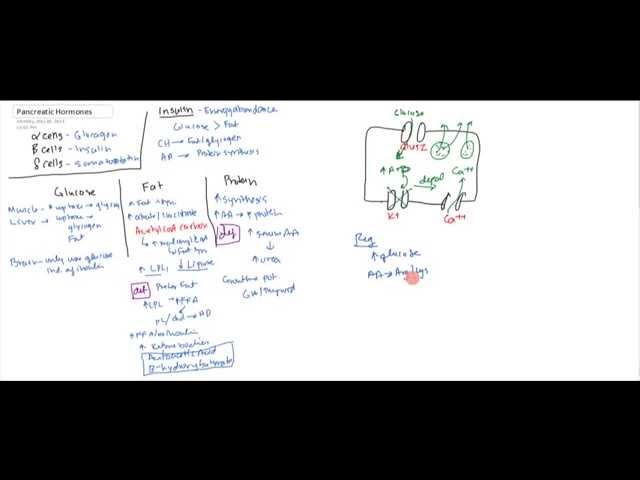 Pancreatic Hormones
α cells - Glucagon
B cells - Insulin
δ cells - Somatostatin
Insulin - Energy abundance
Glucose > Fat
CH → Fat/glycogen
AA → Protein synthesis
Glucose
Muscle - ↑ uptake →
Liver → uptake →
glycogen
Fat
Brain - only use glucose
ind. of insulin
Fat
↑ citrate/isocitrate
Acetyl CoA carbox
↳ ↑ malonyl CoA
↳ Fat syn
↑ LPL ↓ Lipase
def
↑ LPL → ↑ FFA
↑ Ketone bodies
Acetoacetic Acid
B-hydroxybutyrate
Protein
↑ synthesis
↑ AA → ↑ protein
def
↑ AA
↓
↑ urea
Growth → pot.
Glucose
GLUT2
↑ ATP
depol
Ca++
K+
Ca++
Reg
↑ glucose
AA → Arg/Lys